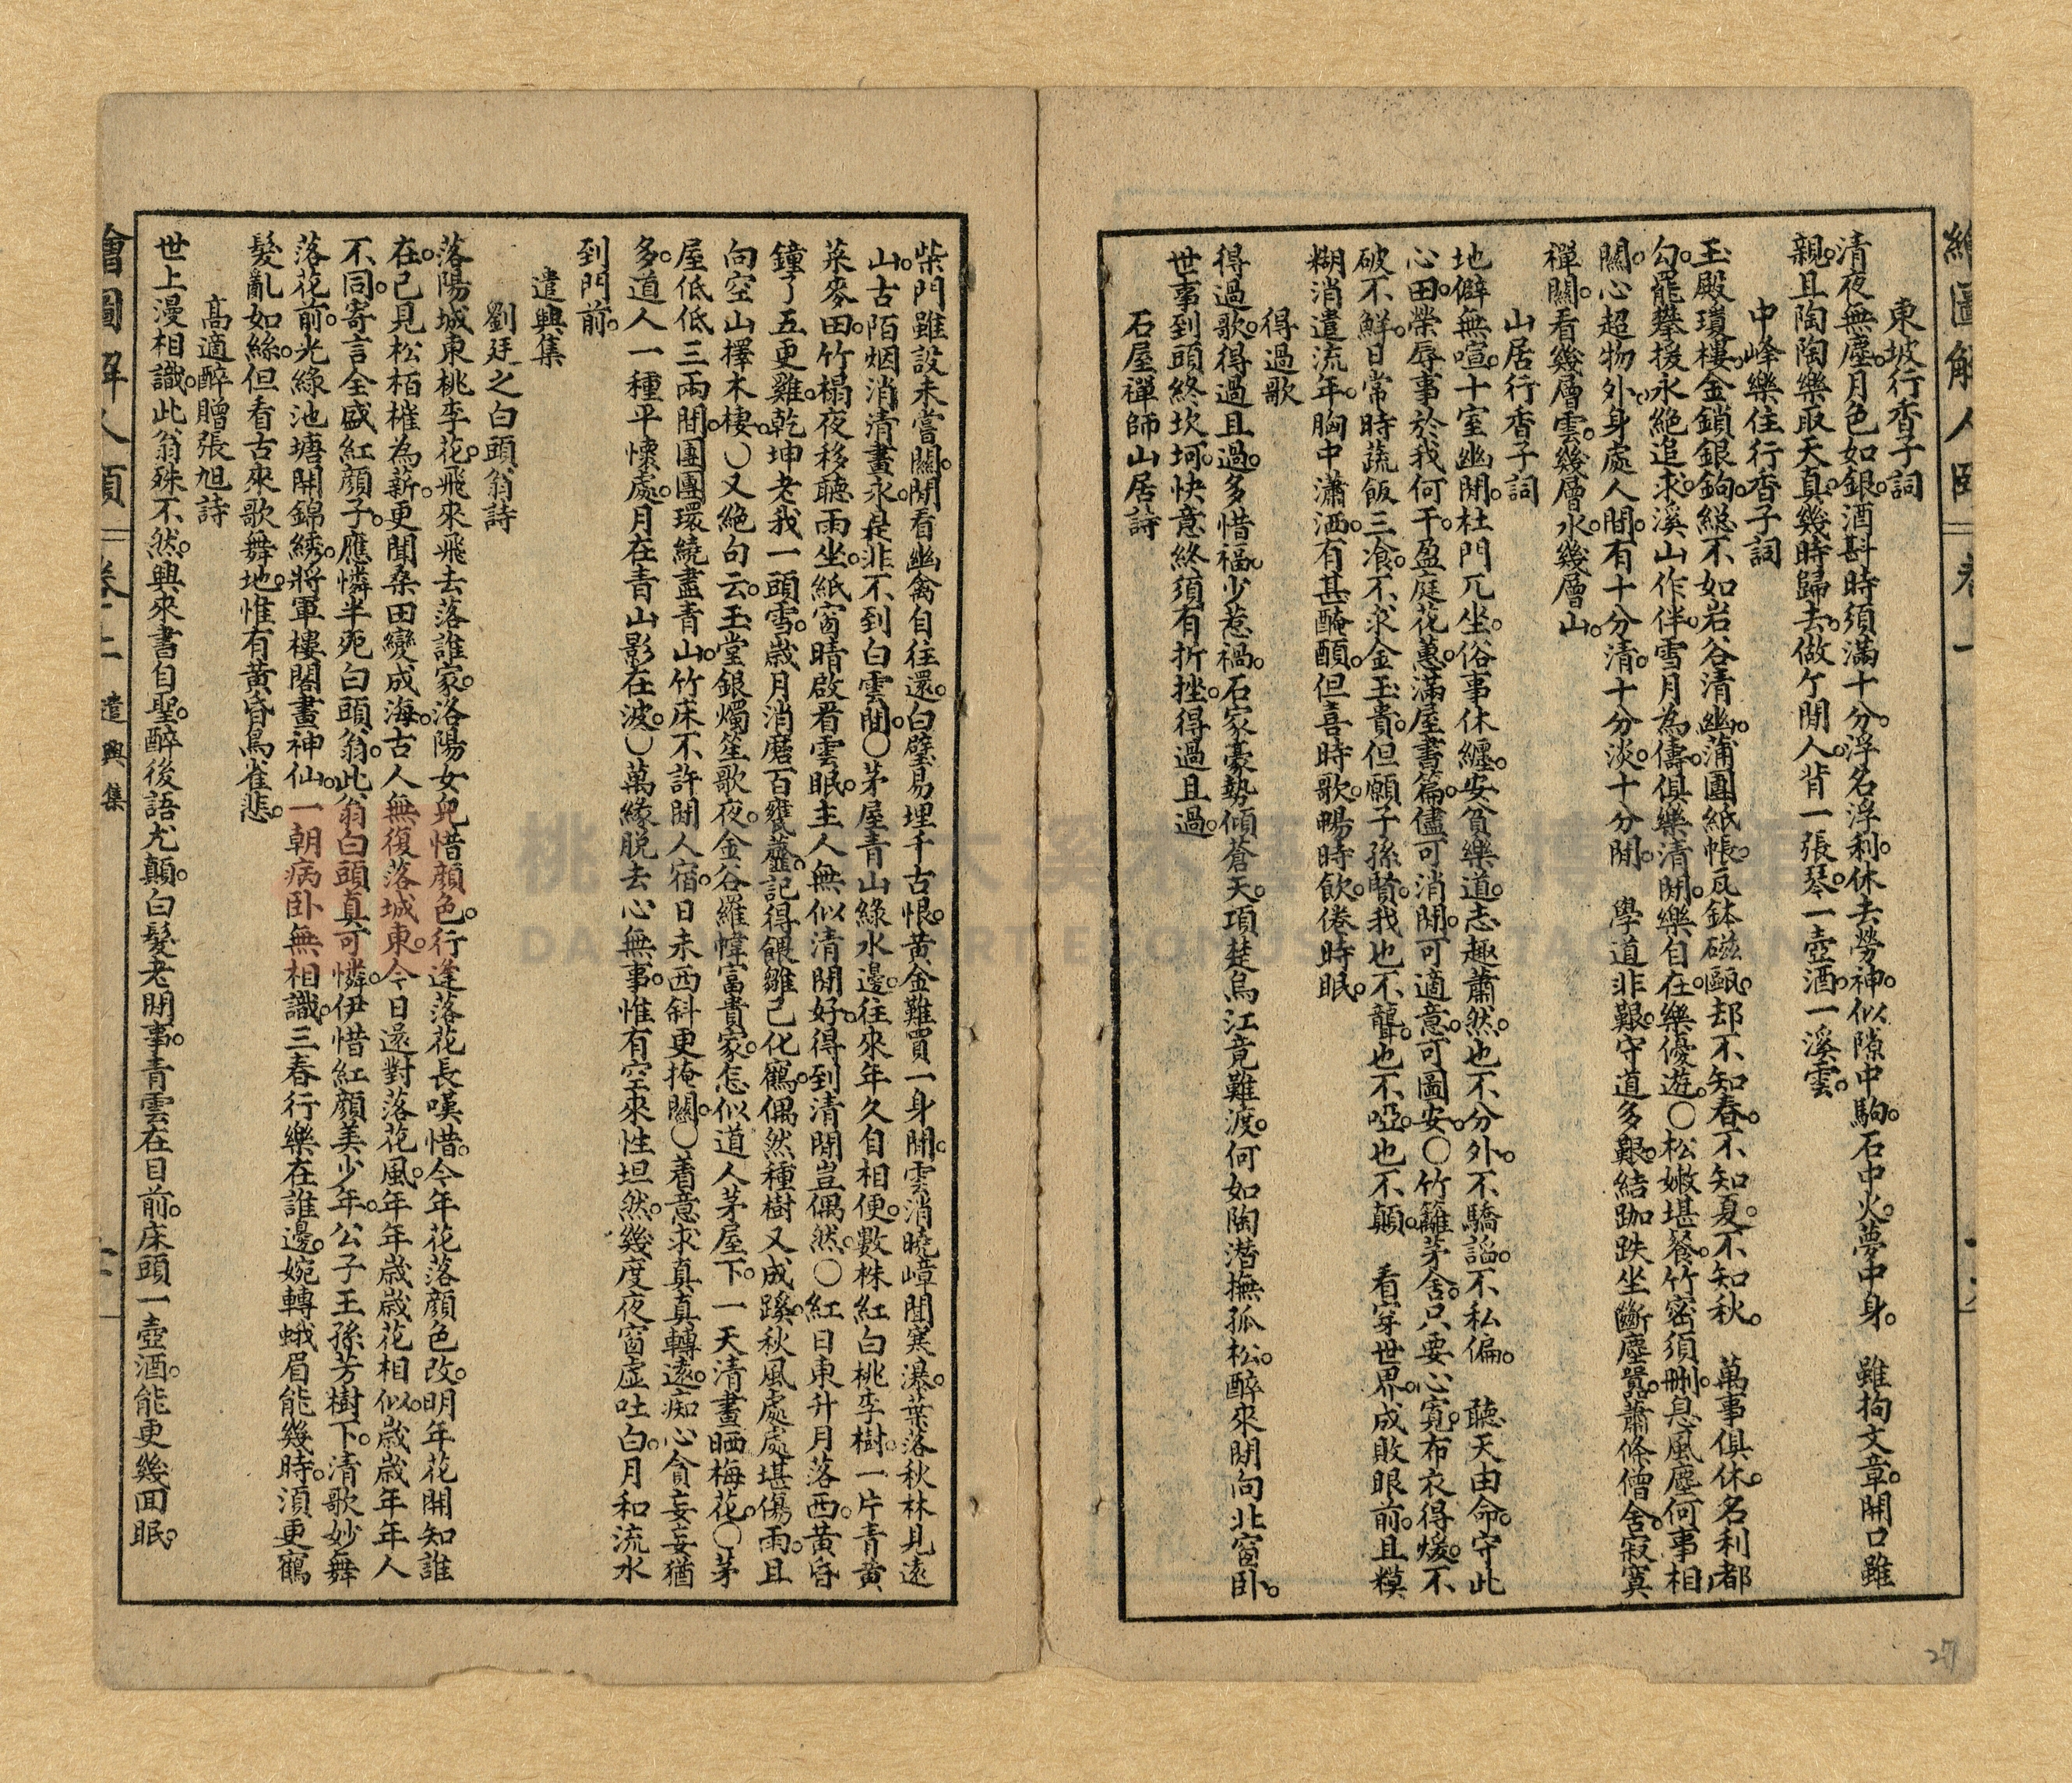 東坡行香子詞
清夜無塵。月色如銀。酒斟時須滿十分。浮名浮利。休去勞神。似隙中駒。石中火。夢中身。 雖拘文章。開口雖
親。且陶陶樂取天真。幾時歸去。做个閒人。背一張琴。一壺酒。一溪雲。
中峰樂住行香子詞
玉殿瓊樓。金鎖銀鉤。總不如岩谷清幽。蒲團紙帳。瓦鉢磁甌。却不知春。不知夏。不知秋。 萬事俱休。名利都
勾。罷攀援永絕追求。溪山作伴。雪月為儔。俱樂清閒。樂自在。樂優遊。○松嫩堪餐。竹密須刪。息風塵何事相
關。心超物外。身處人間。有十分清。十分淡。十分閒。 學道非艱。守道多艱。結跏趺坐斷塵囂。蕭條僧舍。寂寞
禪關。看幾層雲。幾層水。幾層山。
山居行香子詞
地僻無喧。十室幽閒。杜門兀坐。俗事休纏。安貧樂道。志趣蕭然。也不分外。不驕諂。不私偏。 聽天由命。守此
心田。榮辱事於我何干。盈庭花蕙。滿屋書篇。儘可消閒。可適意。可圖安。○竹籬茅舍。只要心寬。布衣得煖。不
破不鮮。日常時蔬飯三飡。不求金玉貴。但願子孫賢。我也不聾。也不啞。也不顛。 看穿世界。成敗眼前。且糢
糊消遣流年。胸中瀟洒。有甚醃䤃。但喜時歌。暢時飲。倦時眠。
得過歌
得過歌。得過且過。多惜福。少惹禍。石家豪勢傾蒼天。項楚烏江竟難渡。何如陶潛撫孤松。醉來閒向北窗卧。
世事到頭終坎坷。快意終須有折挫。得過且過。
石屋禪師山居詩
柴門雖設未嘗關。閒看幽禽自往還。白璧易埋千古恨。黃金難買一身閒。雲消曉嶂聞寒瀑。葉落秋林見遠
山。古陌烟消清晝永。是非不到白雲間。○茅屋青山綠水邊。往來年久自相便。數株紅白桃李樹。一片青黃
菜麥田。竹榻夜移聽雨坐。紙窗晴啟看雲眠。主人無似清閒好。得到清閒豈偶然。○紅日東升月落西。黃昏
鐘了五更雞。乾坤老我一頭雪。歲月消磨百甕虀。記得餵雛已化鶴。偶然種樹又成蹊。秋風處處堪傷雨。且
向空山擇木棲。○又絕句云。玉堂銀燭笙歌夜。金谷羅幃富貴家。怎似道人茅屋下。一天清晝晒梅花。○茅
屋低低三兩間。團團環繞盡青山。竹床不許閒人宿。日未西斜更掩關。○着意求真真轉遠。痴心貪妄妄猶
多。道人一種平懷處。月在青山影在波。○萬緣脱去心無事。惟有空來性坦然。幾度夜窗虛吐白。月和流水
到門前。
遣興集
劉廷之白頭翁詩
落陽城東桃李花。飛來飛去落誰家。洛陽女兒惜顏色。行逢落花長嘆惜。今年花落顏色改。明年花開知誰
在。已見松栢摧為薪。更聞桑田變成海。古人無復落城東。今日還對落花風。年年歲歲花相似。歲歲年年人
不同。寄言全盛紅顔子。應憐半死白頭翁。此翁白頭真可憐。伊惜紅顏美少年。公子王孫芳樹下。清歌妙舞
落花前。光綠池塘開錦綉。將軍樓閣畫神仙。一朝病卧無相識。三春行樂在誰邊。婉轉蛾眉能幾時。須更鶴
髮亂如絲。但看古來歌舞地。惟有黃昏鳥雀悲。
高適醉贈張旭詩
世上漫相識。此翁殊不然。興來書自聖。醉後語尤顛。白髮老閒事。青雲在目前。床頭一壺酒。能更幾回眠。
繪圖解人頤 卷十二 遣興集
27